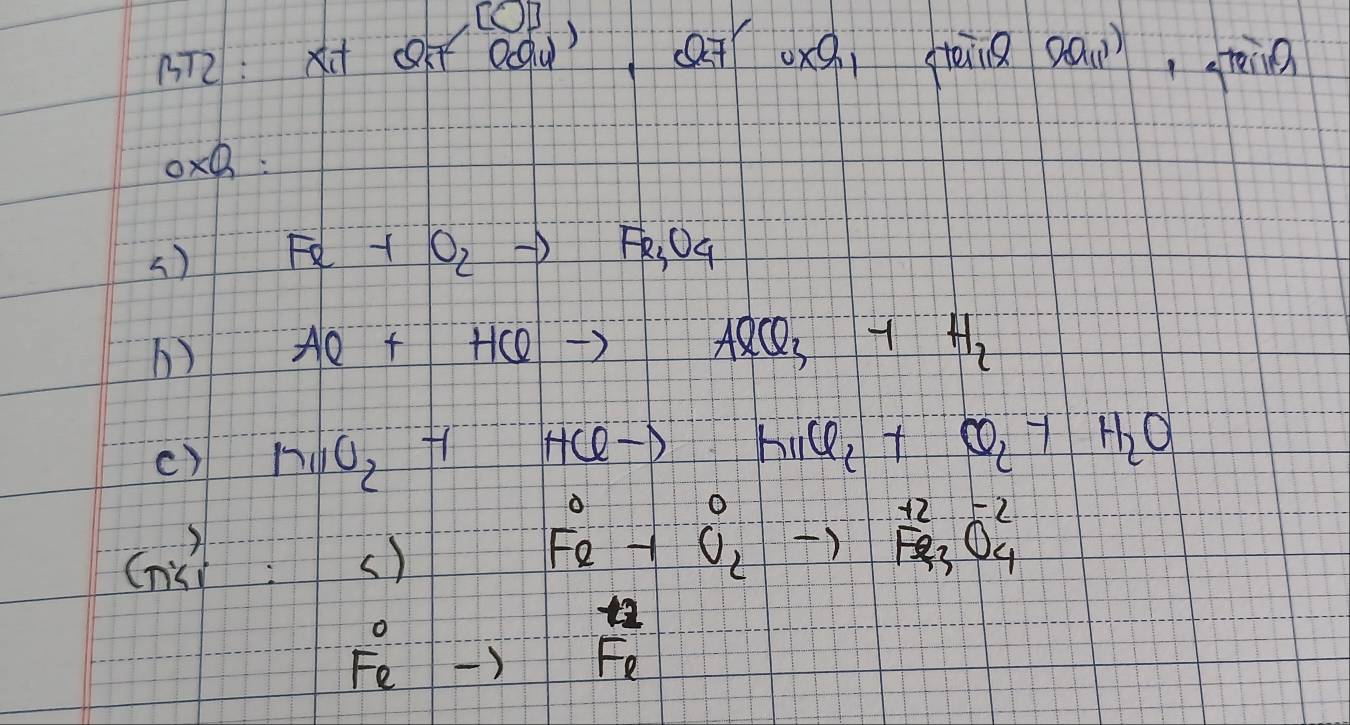 [O]
BT2: xđ chất oxh, quá trình khử, quá trình
oxh:
a) Fe + O2 → Fe3O4
b) Al + HCl → AlCl3 + H2
c) MnO2 + HCl → MnCl2 + Cl2 + H2O
0 0 +2 -2
Giải: a) Fe + O2 → Fe3O4
0 +2
Fe → Fe